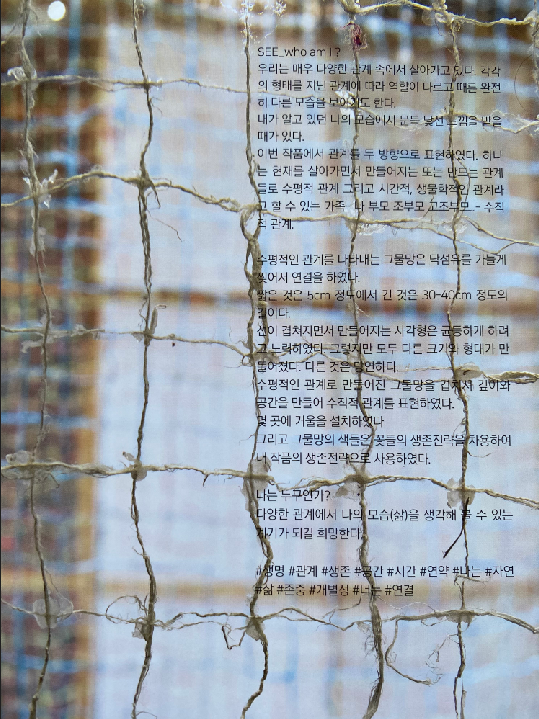 SEE_who am I ?
우리는 매우 다양한 관계 속에서 살아가고 있다. 각각
의 형태를 지닌 관계에 따라 역할이 다르고 때론 완전
히 다른 모습을 보이기도 한다.
내가 알고 있던 나의 모습에서 문득 낯선 느낌을 받을
때가 있다.
이번 작품에서 관계를 두 방향으로 표현하였다. 하나
는 현재를 살아가면서 만들어지는 또는 만드는 관계
들로 수평적 관계 그리고 시간적, 생물학적인 관계라
고 할 수 있는 가족 나 부모 조부모 고조부모 - 수직
적 관계.
수평적인 관계를 나타내는 그물망은 닥섬유를 가늘게
찢어서 연결을 하였다.
짧은 것은 5cm 정도에서 긴 것은 30~40cm 정도의
길이다.
선이 겹쳐지면서 만들어지는 사각형은 균등하게 하려
고 노력하였다. 그렇지만 모두 다른 크기와 형태가 만
들어졌다. 다른 것은 당연하다.
수평적인 관계로 만들어진 그물망을 겹쳐서 깊이와
공간을 만들어 수직적 관계를 표현하였다.
몇 곳에 거울을 설치하였다
그리고 그물망의 색들은 꽃들의 생존전략을 차용하여
내 작품의 생존전략으로 사용하였다.
나는 누구인가?
다양한 관계에서 나의 모습(삶)을 생각해 볼 수 있는
계기가 되길 희망한다.
#생명 #관계 #생존 #공간 #시간 #연약 #나는 #자연
#삶 #존중 #개별성 #너는 #연결